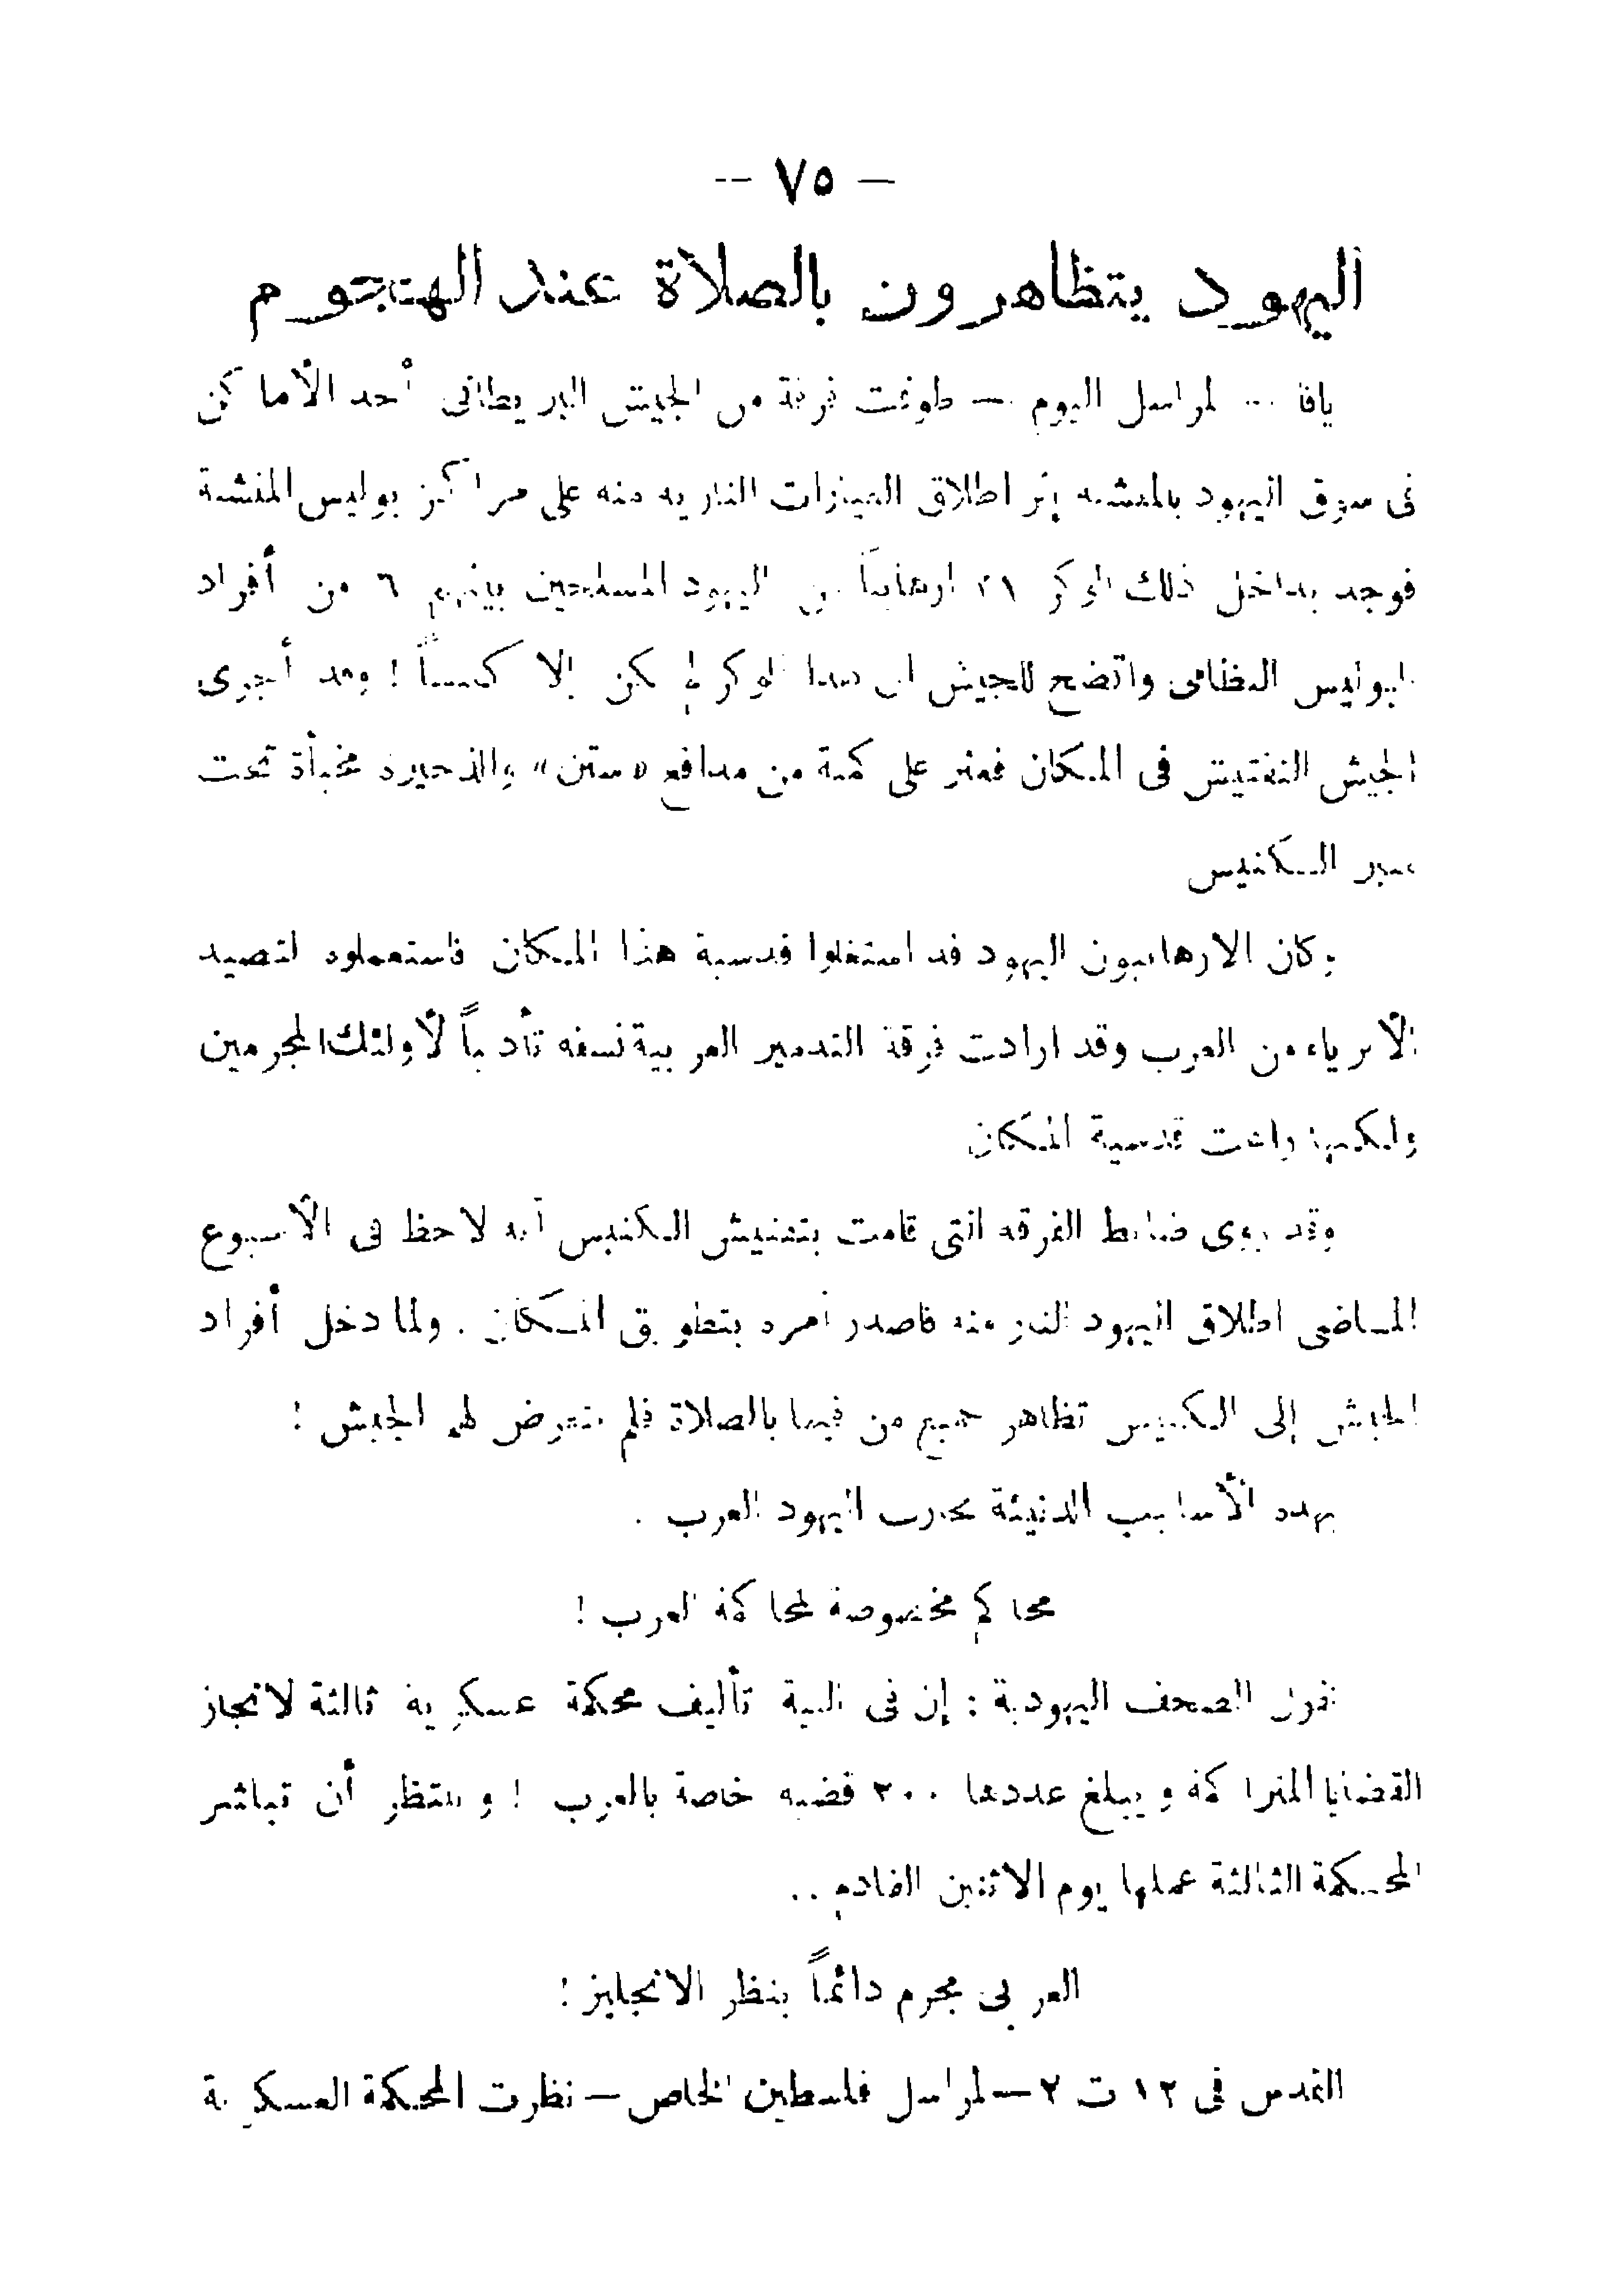 — ٧٥ —
اليهود يتظاهرون بالصلاة عند الهجوم
يافا — لمراسل اليوم — طوقت فرقة من الجيش البريطانى أحد الأماكن
فى سوق اليهود بالمنشيه إثر اطلاق العيارات الناريه منه على مراكز بوليس المنشية
فوجد بداخل ذلك الوكر ٢١ ارهابياً من اليهود المسلحين بينهم ٦ من أفراد
البوليس النظامى واتضح للجيش ان هذا الوكر لم يكن إلا كنيساً ! وقد أجرى
الجيش التفتيش فى المكان فعثر على كمية من مدافع «ستن» والذخيره مخبأة تحت
منبر الكنيس
وكان الارهابيون اليهود قد استغلوا قدسية هذا المكان فاستعملوه لتصيد
الأبرياء من العرب وقد ارادت فرقة التدمير العربية نسفه تأديباً لأولئك المجرمين
ولكنها راعت قدسية المكان
وقد روى ضابط الفرقه التى قامت بتفتيش الكنيس أنه لاحظ فى الأسبوع
الماضى اطلاق اليهود النار منه فاصدر أمره بتطويق المكان . ولما دخل أفراد
الجيش إلى الكنيس تظاهر جميع من فيها بالصلاة فلم يتعرض لهم الجيش !
بهذه الأساليب الدنيئة يحارب اليهود العرب .
محاكم مخصوصة لمحاكمة العرب !
تقول الصحف اليهودية : إن فى النية تأليف محكمة عسكرية ثالثة لانجاز
القضايا المتراكمة ويبلغ عددها ٢٠٠ قضيه خاصة بالعرب ! وينتظر أن تباشر
المحكمة الثالثة عملها يوم الاثنين القادم ..
العربى مجرم دائماً بنظر الانجليز !
القدس فى ١٢ ت ٢ — لمراسل فلسطين الخاص — نظرت المحكمة العسكرية